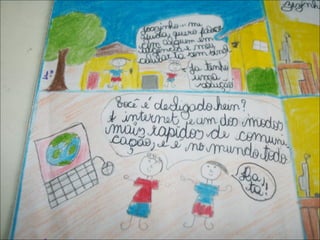 Joãozinho me
ajuda, quero falar
com alguém em
e meu
celular tá sem sinal
Eu tenho
uma
solução
Você é desligado hein?
A internet é um dos modos
mais rápidos de comuni
cação, e é no mundo todo
Eba!!